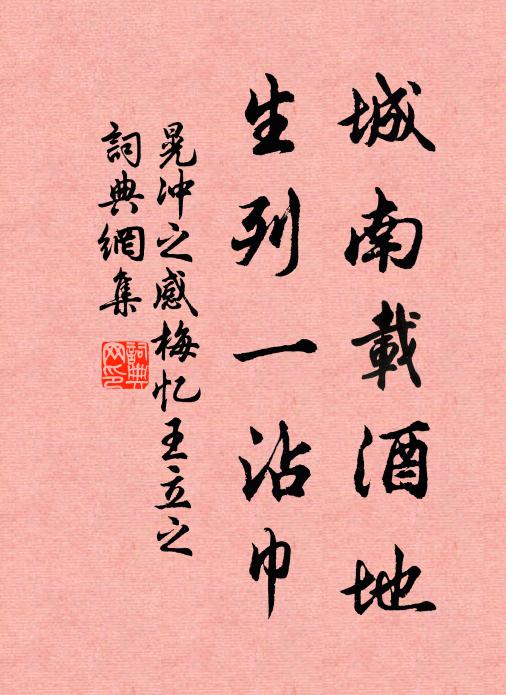 城南載酒地
生列一沾巾
晃冲之感梅忆王立之
詞典網集
詞典網印